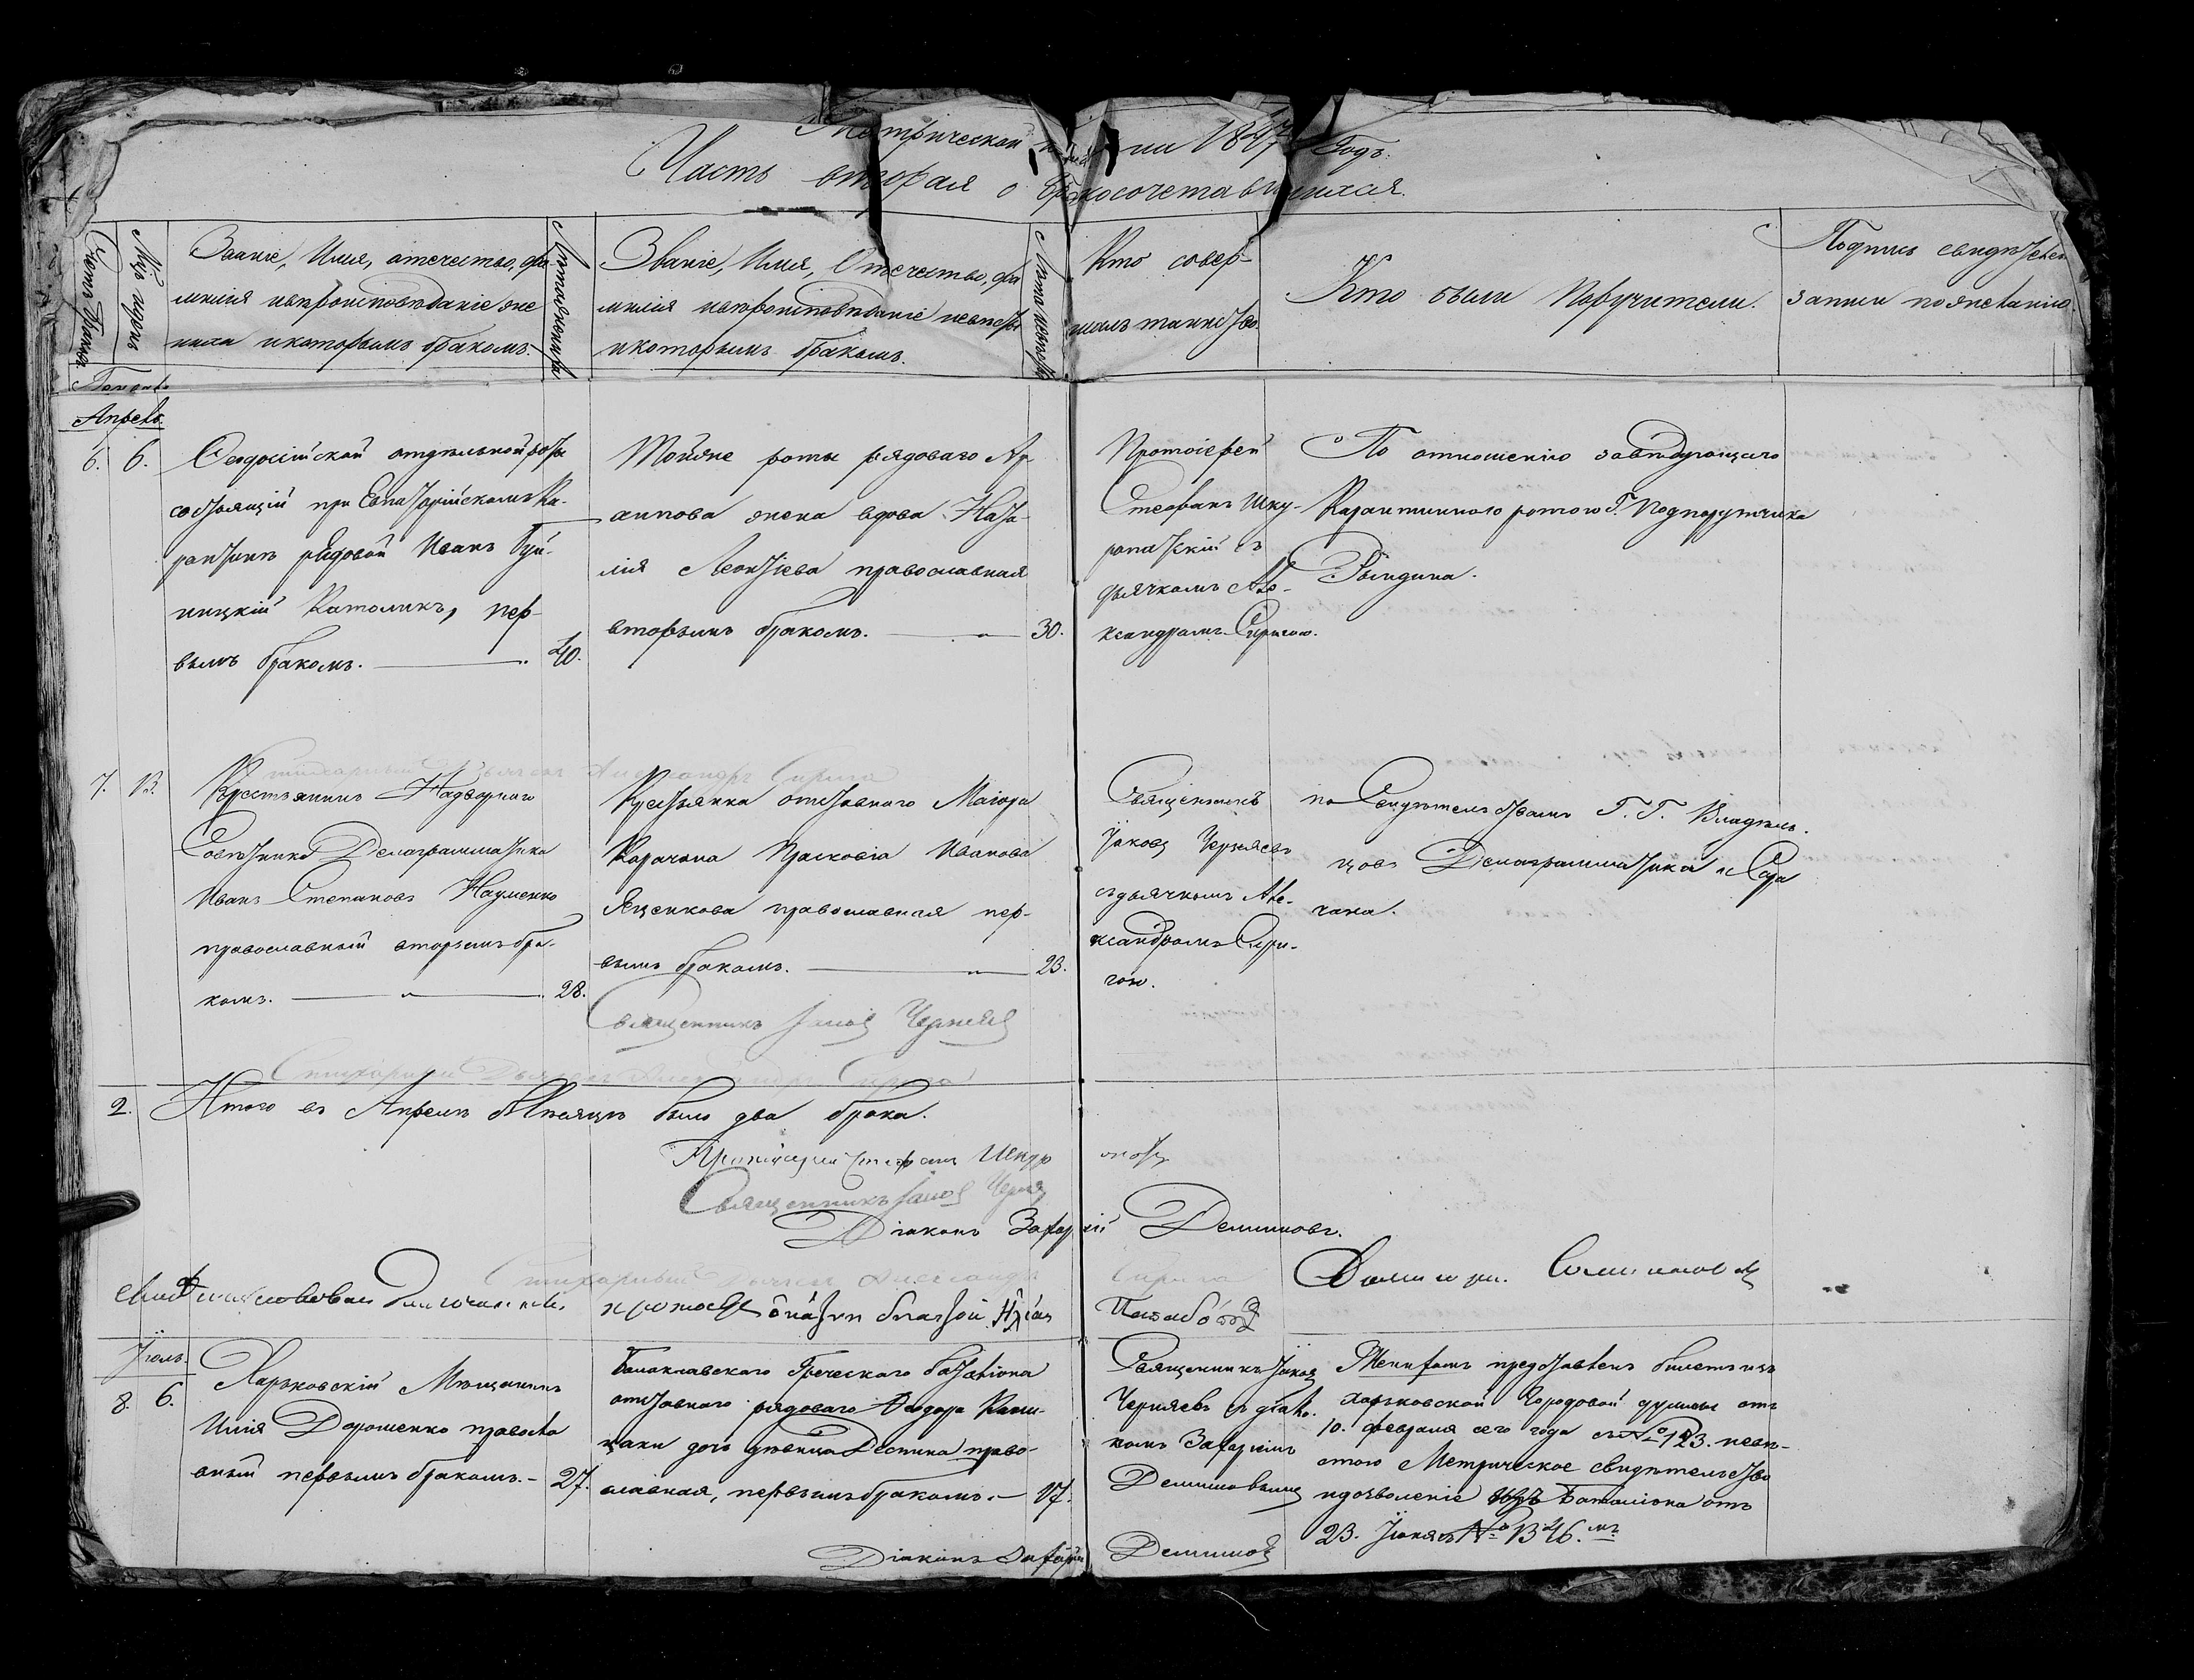 Метрической на 1847 Годъ.
Часть вторая о бракосочетавшихся.
Счетъ браковъ
Мѣс. и день
Званіе, Имя, отечество, фа-
милія и вѣроисповѣданіе же
ниха и которымъ бракомъ.
Лѣта жениха
Званіе, Имя, Отечество, фа
милія и вѣроисповѣданіе невѣсты
и которымъ бракомъ.
Лѣта невѣсты
Кто совер-
шалъ таинство
Кто были Поручители.
Подпись свидѣтелей
записи по желанію.
Апрель.
6. 6.
Феодосійской отдѣльной роты
состоящій при Евпаторійскомъ Ка-
рантинѣ рядовой Иванъ Буй-
ницкій Католикъ, пер-
вымъ бракомъ. 40.
Тойже роты рядоваго Ар
хипова жена вдова Ната-
лія Леонтіева православная
вторымъ бракомъ. 30.
Протоіерей
Стефанъ Шку-
ропатскій съ
дьячкомъ Але-
ксандромъ Сиригою.
По отношенію завѣдующаго
Карантинною ротою Г. Подпоручика
Рындина.
7. 13.
Стихарный Дьячекъ Александръ Сирига
Крестьянинъ Надворнаго
Совѣтника Демаграмматика
Иванъ Степановъ Науменко
православный вторымъ бра-
комъ. 28.
Крестьянка отставнаго Маіора
Карачана Прасковія Иванова
Яценкова православная пер-
вымъ бракомъ. 23.
Священникъ
Іаковъ Черняевъ
съ дьячкомъ Але-
ксандромъ Сири-
гою.
по Свидѣтельствамъ Г. Г. Владѣль-
цовъ Демаграмматика и Кара
чана.
Священникъ Іаковъ Черняевъ
Стихарный Дьячекъ Александръ Сирига
2. Итого въ Апрелѣ Мѣсяцѣ было два брака.
Протоіерей Стефанъ Шкуро
Священникъ Іаковъ Черняе
Діаконъ Захарій Демишовъ.
Стихарный Дьячекъ Александръ Сирига
Свидѣтельствовалъ Благочинный
Іюль.
8. 6.
Харьковскій Мѣщанинъ
Илія Дорошенко правосла
вный первымъ бракомъ. 27.
Балаклавскаго Греческаго баталіона
отставнаго рядоваго Феодора
дочь дѣвица Деспина право-
славная, первымъ бракомъ. 17.
Священникъ Іаковъ
Черняевъ съ діако-
номъ Захаріемъ
Демишовымъ
Женихомъ представленъ билетъ изъ
Харьковской Городовой думы отъ
10. февраля сего года съ № 123. невѣ-
стою Метрическое свидѣтельство
и дозволеніе Баталіона отъ
23. Іюня № 1346.мъ
Діаконъ Захарій Демишовъ